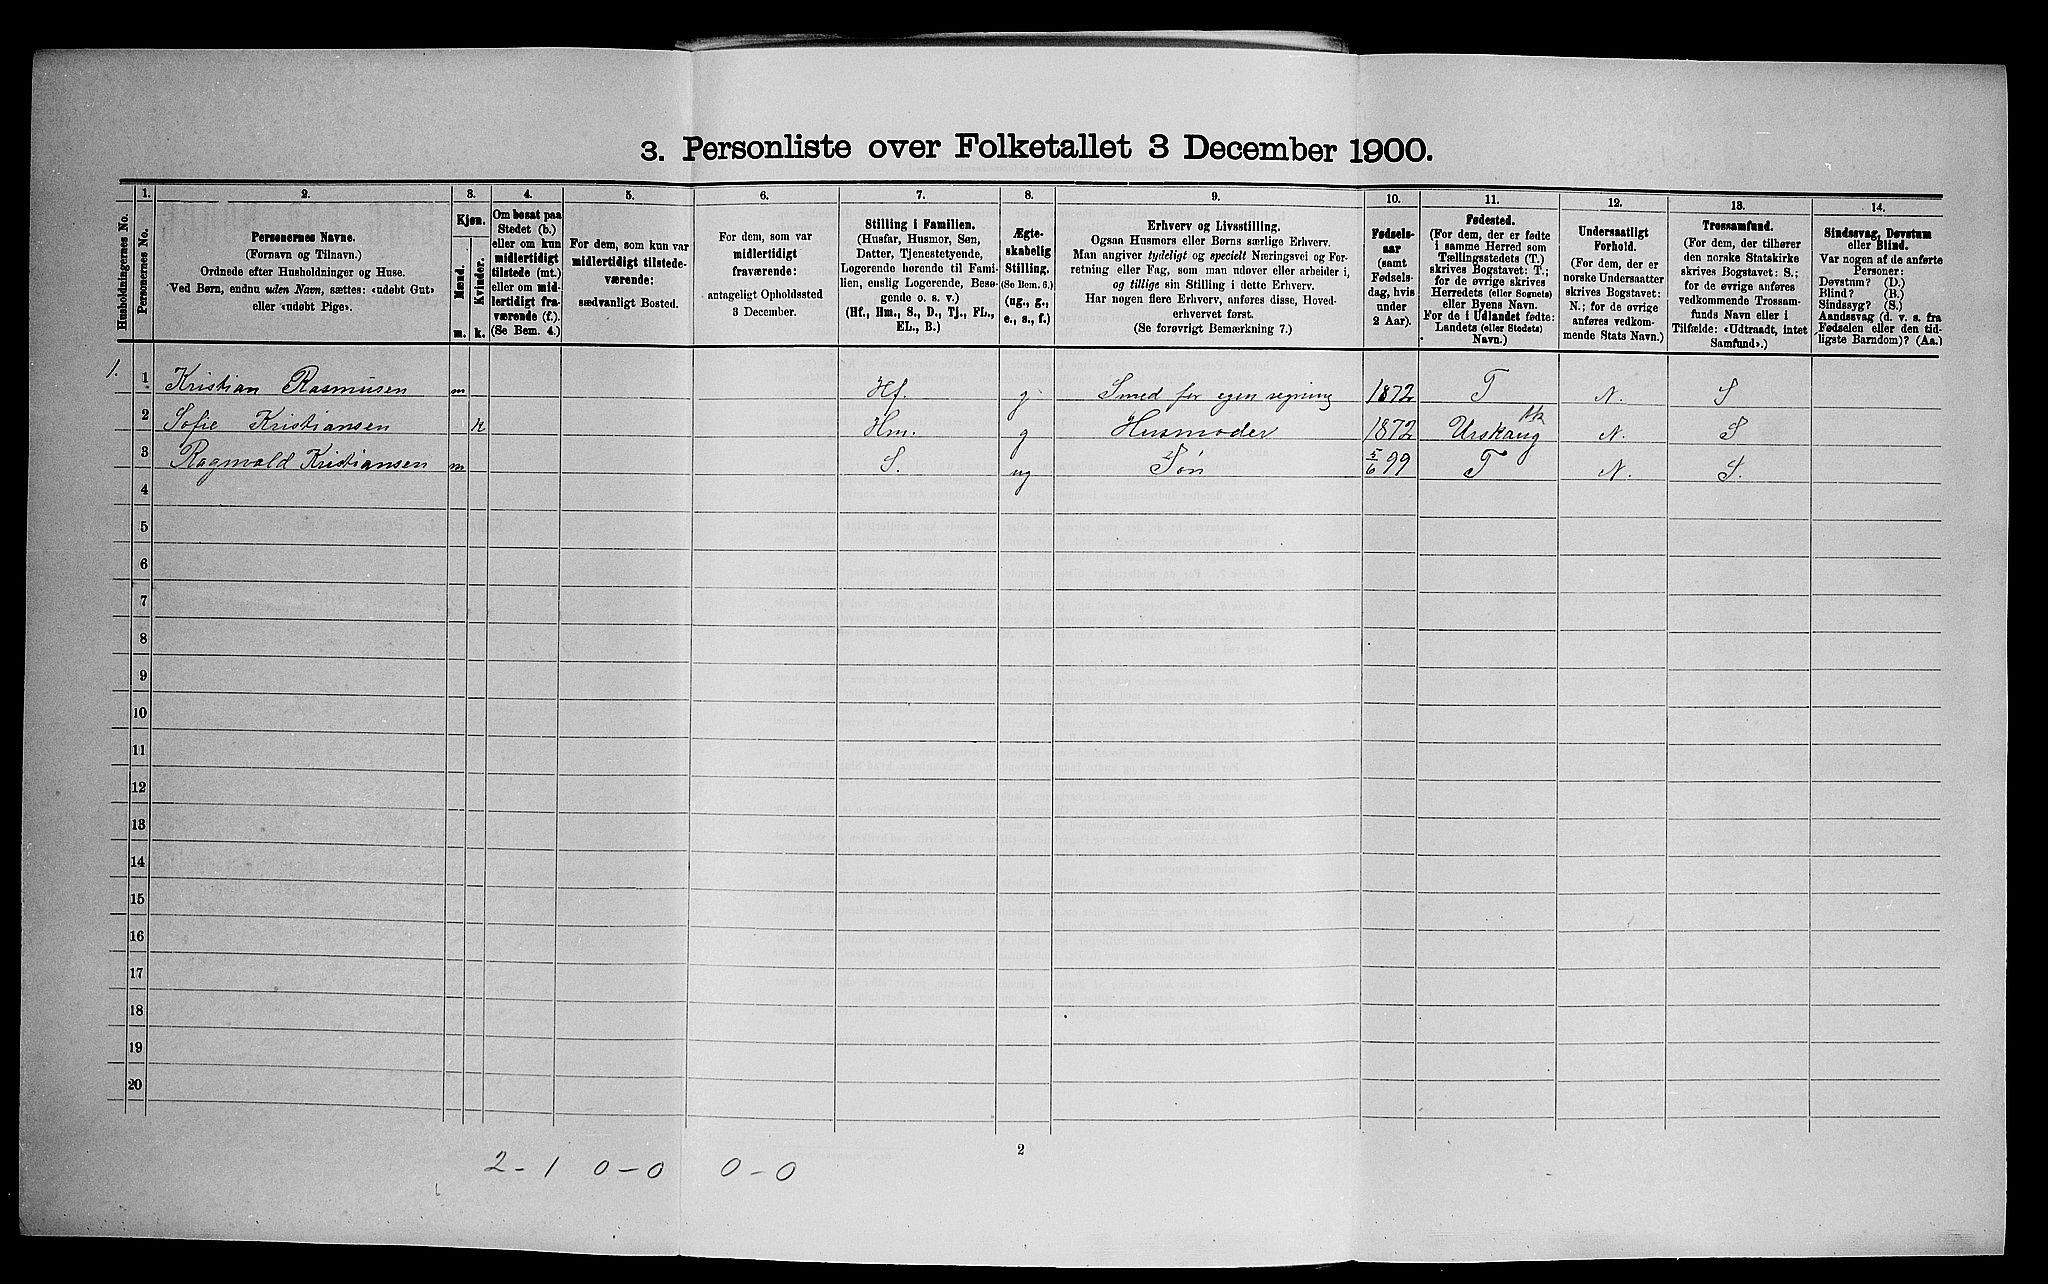 3. Personliste over Folketallet 3 December 1900.
1. 2. 3. 4. 5. 6. 7. 8. 9. 10. 11. 12. 13. 14.
Husholdningernes No.
Personernes No.
Personernes Navne.
(Fornavn og Tilnavn.)
Ordnede efter Husholdninger og Huse.
Ved Børn, endnu uden Navn, sættes: «udøbt Gut»
eller «udøbt Pige».
Kjøn.
Mænd.
Kvinder.
m. k.
Om bosat paa
Stedet (b.)
eller om kun
midlertidigt
tilstede (mt.)
eller om mid-
lertidigt fra-
værende (f.).
(Se Bem. 4.)
For dem, som kun var
midlertidigt tilstede-
værende:
sædvanligt Bosted.
For dem, som var
midlertidigt
fraværende:
antageligt Opholdssted
3 December.
Stilling i Familien.
(Husfar, Husmor, Søn,
Datter, Tjenestetyende,
Logerende hørende til Fami-
lien, enslig Logerende, Besø-
gende o. s. v.)
(Hf., Hm., S., D., Tj., FL.,
EL., B.)
Ægte-
skabelig
Stilling.
(Se Bem. 6.)
(ug., g.,
e., s., f.)
Erhverv og Livsstilling.
Ogsaa Husmors eller Børns særlige Erhverv.
Man angiver tydeligt og specielt Næringsvei og For-
retning eller Fag, som man udover eller arbeider i,
og tillige sin Stilling i dette Erhverv.
Har nogen flere Erhverv, anføres disse, Hoved-
erhvervet først.
(Se forøvrigt Bemærkning 7.)
Fødsels-
aar
(samt
Fødsels-
dag, hvis
under
2 Aar).
Fødested.
(For dem, der er fødte
i samme Herred som
Tællingsstedets (T.)
skrives Bogstavet: T.;
for de øvrige skrives
Herredets (eller Sognets)
eller Byens Navn.
For de i Udlandet fødte:
Landets (eller Stedets)
Navn.)
Undersaatligt
Forhold.
(For dem, der er
norske Undersaatter
skrives Bogstavet:
N.; for de øvrige
anføres vedkom-
mende Stats Navn.)
Trossamfund.
(For dem, der tilhører
den norske Statskirke
skrives Bogstavet: S.;
for de øvrige anføres
vedkommende Trossam-
funds Navn eller i
Tilfælde: «Udtraadt, intet
Samfund».)
Sindssvag, Døvstum
eller Blind.
Var nogen af de anførte
Personer:
Døvstum? (D.)
Blind? (B.)
Sindssyg? (S.)
Aandssvag (d. v. s. fra
Fødselen eller den tid-
ligste Barndom)? (Aa.)
1. 1 Kristian Rasmusen m Hf. g Smed for egen regning 1872 T N. S
2 Sofie Kristiansen k Hm. g Husmoder 1872 Urskaug Ak N. S
3 Ragnvald Kristiansen m S. ug Søn 5/6 99 T N. S.
4
5
6
7
8
9
10
11
12
13
14
15
16
17
18
19
20
2
2-1 0-0 0-0